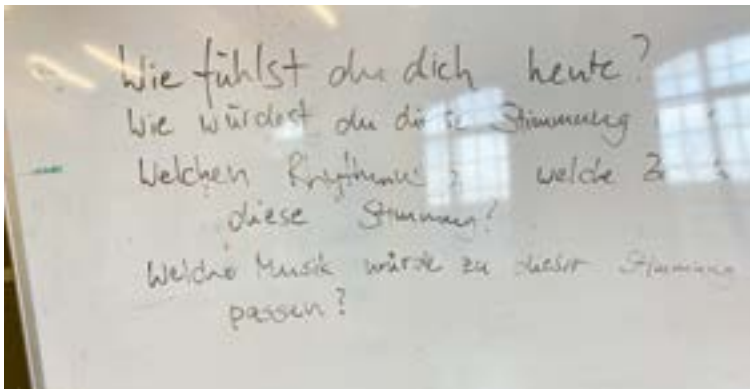 Wie fühlst du dich heute?
Wie würdest du diese Stimmung
Welchen Rhythmus welche
diese Stimmung?
Welche Musik würde zu dieser Stimmung
passen?